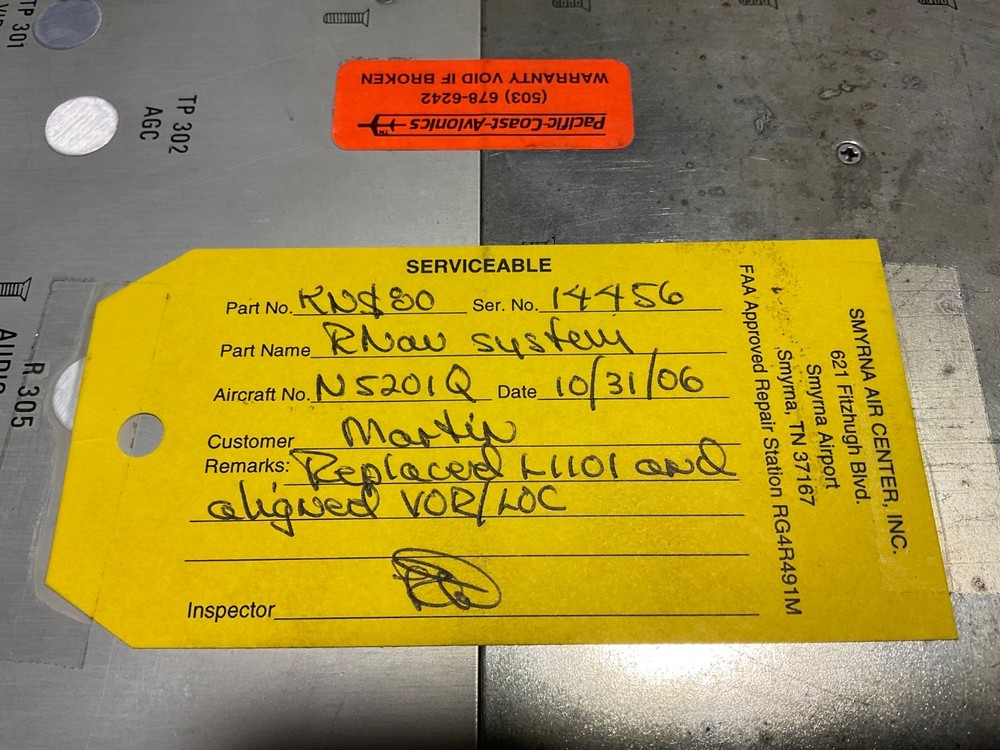 TP 301
TP 302
AGC
Pacific-Coast-Avionics™
(503) 678-6242
WARRANTY VOID IF BROKEN
R 305
SERVICEABLE
Part No. KNS80 Ser. No. 14456
Part Name RNav system
Aircraft No. N5201Q Date 10/31/06
Customer Martin
Remarks: Replaced L1101 and
aligned VOR/LOC
Inspector
SMYRNA AIR CENTER, INC.
621 Fitzhugh Blvd.
Smyrna Airport
Smyrna, TN 37167
FAA Approved Repair Station RG4R491M